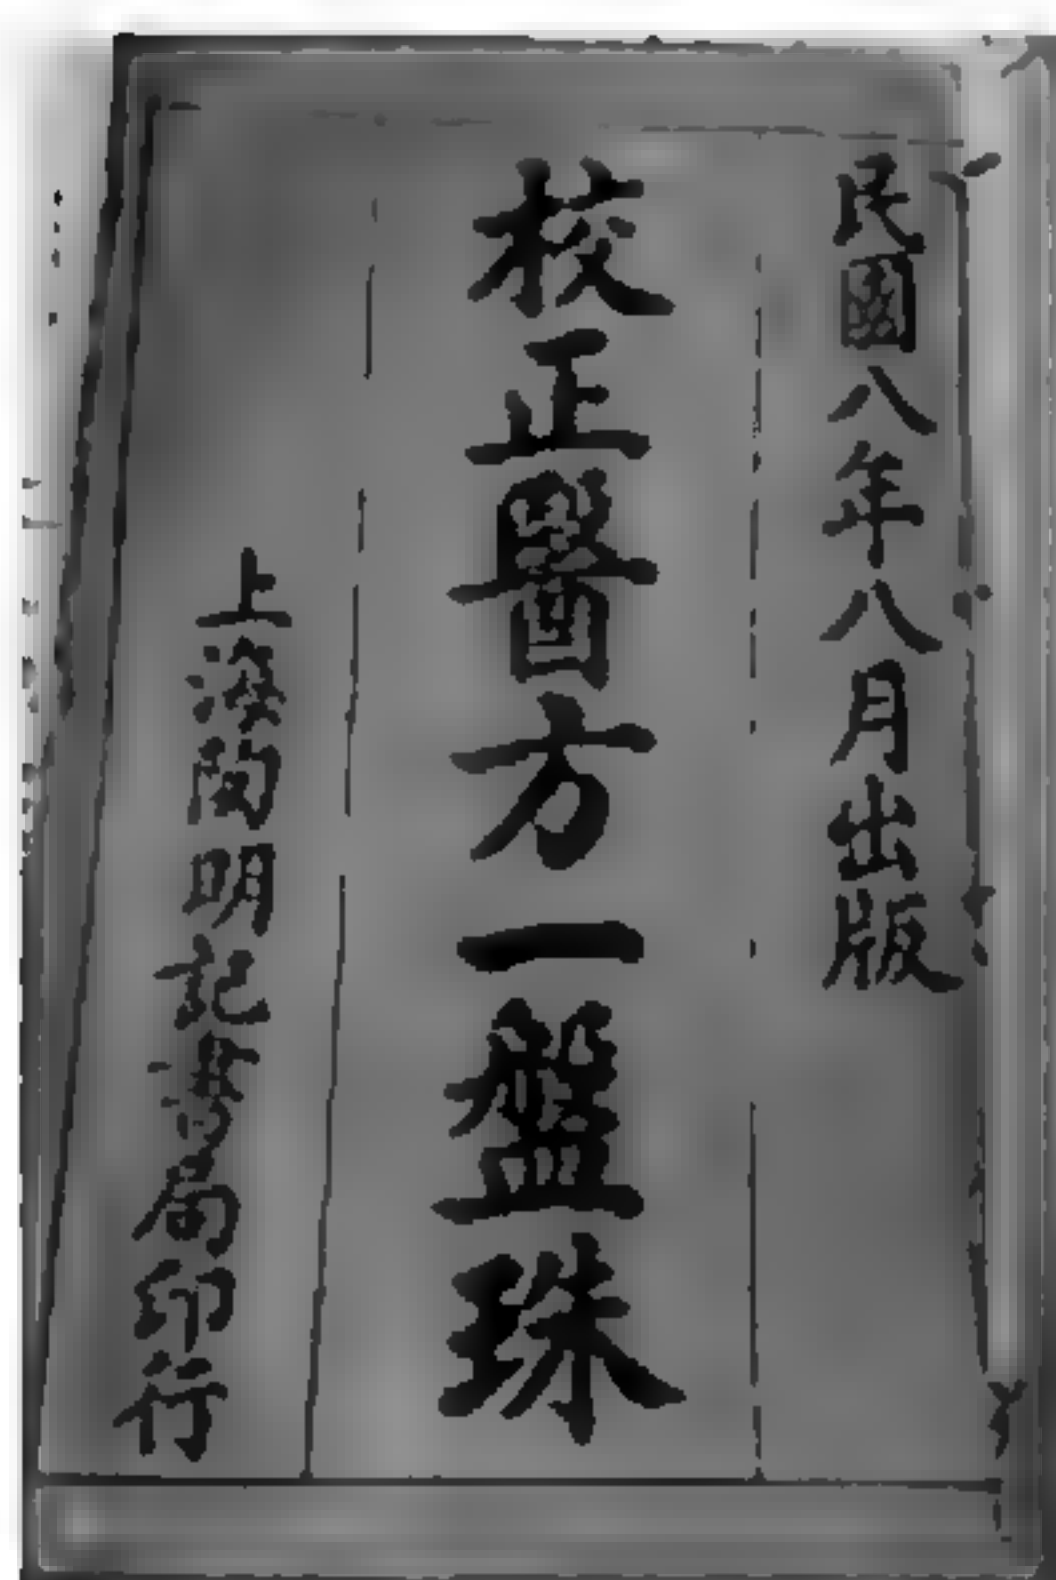 民國八年八月出版
校正醫方一盤珠
上海閔明記書局印行